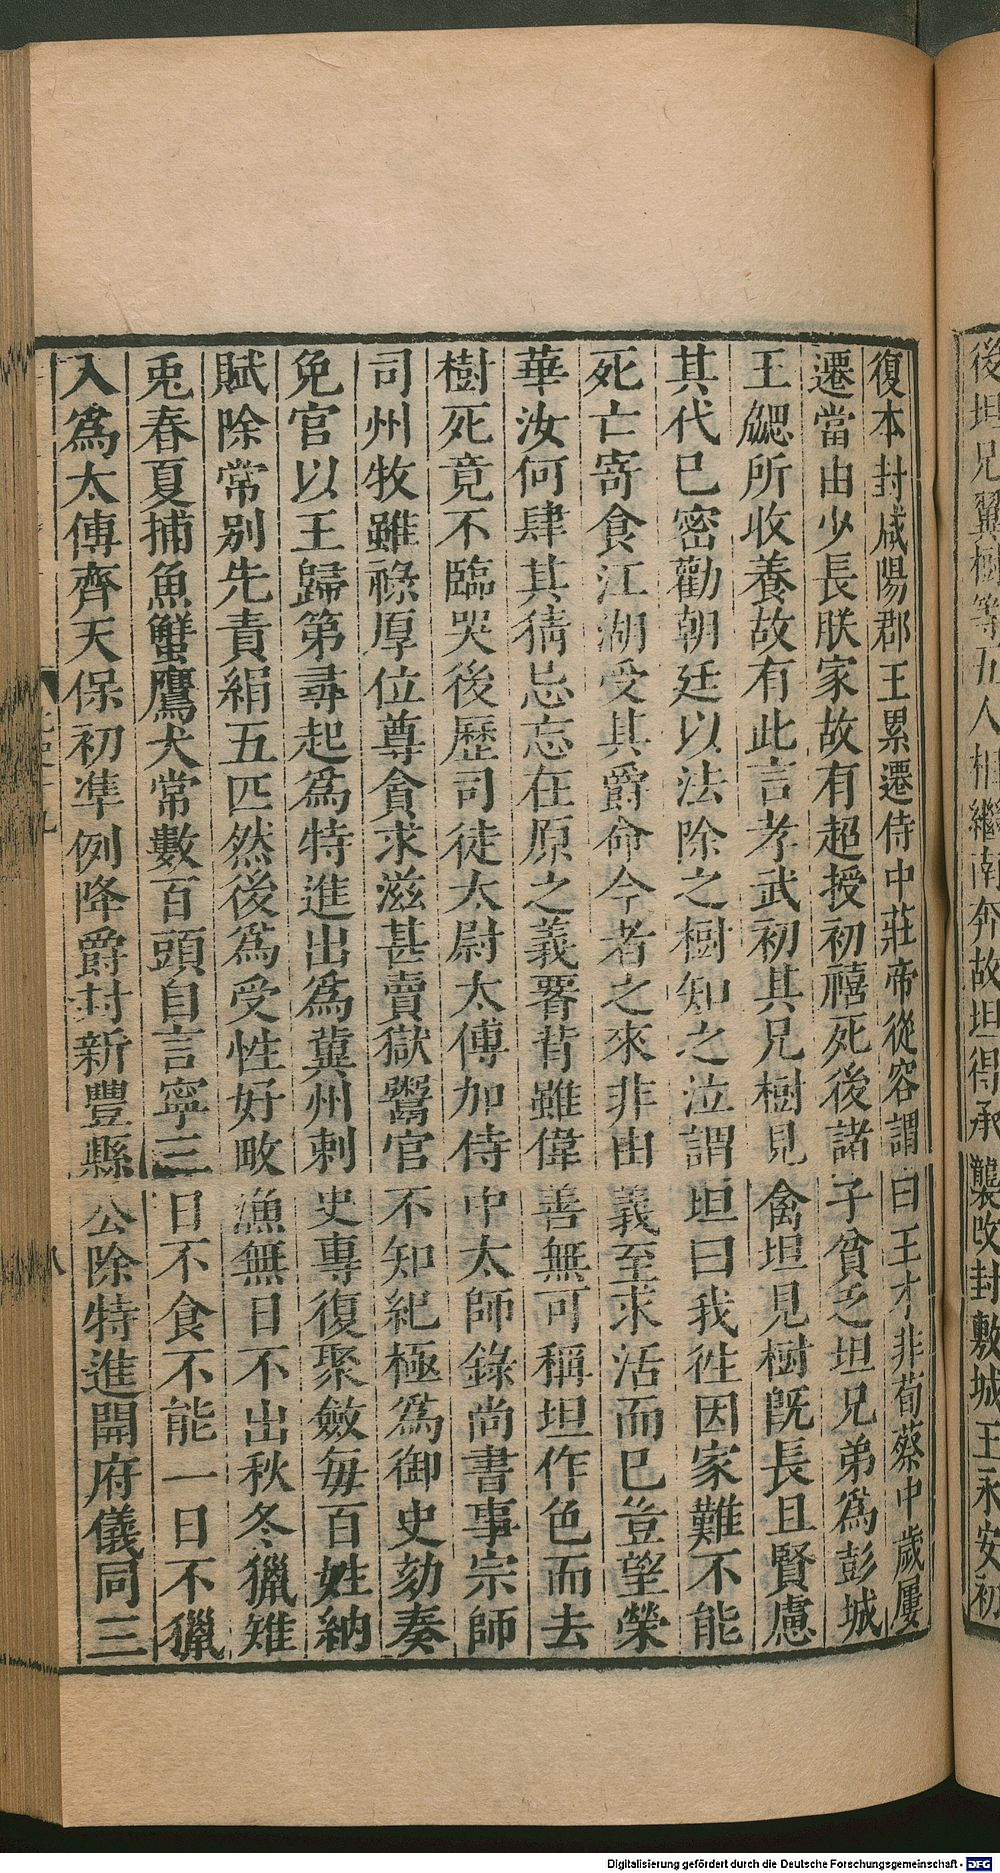 後坦兄翼樹等五人相繼南奔故坦得承襲改封敷城王永安初
復本封咸陽郡王累遷侍中莊帝從容謂曰王才非荀蔡中歲屢
遷當由少長朕家故有超授初禧死後諸子貧乏坦兄弟爲彭城
王勰所收養故有此言孝武初其兄樹見禽坦見樹旣長且賢慮
其代已密勸朝廷以法除之樹知之泣謂坦曰我徃因家難不能
死亡寄食江湖受其爵命今者之來非由義至求活而巳豈望榮
華汝何肆其猜忌忘在原之義署背雖偉善無可稱坦作色而去
樹死竟不臨哭後歷司徒太尉太傅加侍中太師錄尚書事宗師
司州牧雖祿厚位尊貪求滋甚賣獄鬻官不知紀極爲御史劾奏
免官以王歸第尋起爲特進出爲冀州刺史專復聚斂每百姓納
賦除常别先責絹五匹然後爲受性好畋漁無日不出秋冬獵雉
兎春夏捕魚蟹鷹犬常數百頭自言寧三日不食不能一日不獵
入爲太傅齊天保初準例降爵封新豐縣公除特進開府儀同三